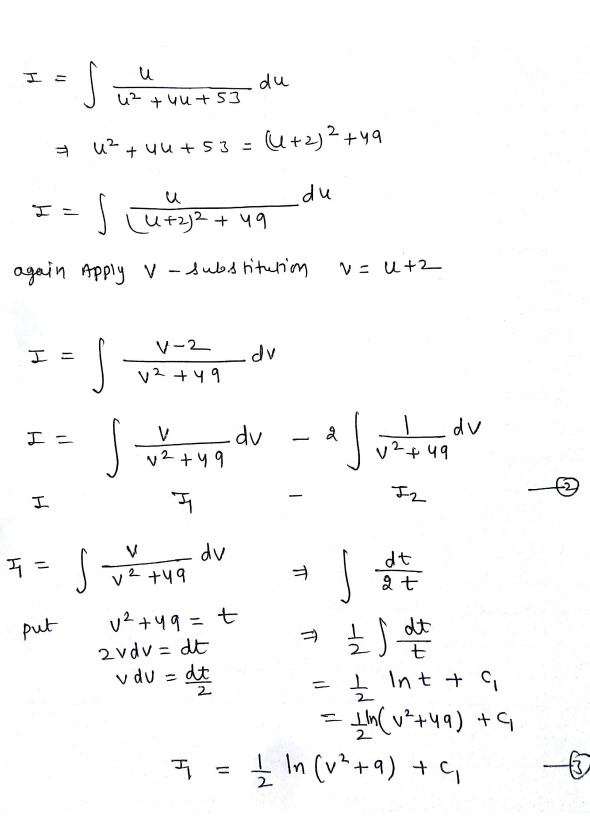 I = ∫ u / (u² + 4u + 53) du
⇒ u² + 4u + 53 = (u+2)² + 49
I = ∫ u / ((u+2)² + 49) du
again Apply v - substitution v = u+2
I = ∫ (v-2) / (v² + 49) dv
I = ∫ v / (v² + 49) dv - 2 ∫ 1 / (v² + 49) dv
I I₁ - I₂ —②
I₁ = ∫ v / (v² + 49) dv ⇒ ∫ dt / 2t
put v² + 49 = t ⇒ 1/2 ∫ dt / t
2vdv = dt
vdv = dt/2 = 1/2 ln t + c₁
= 1/2 ln(v² + 49) + c₁
I₁ = 1/2 ln (v² + 9) + c₁ —③